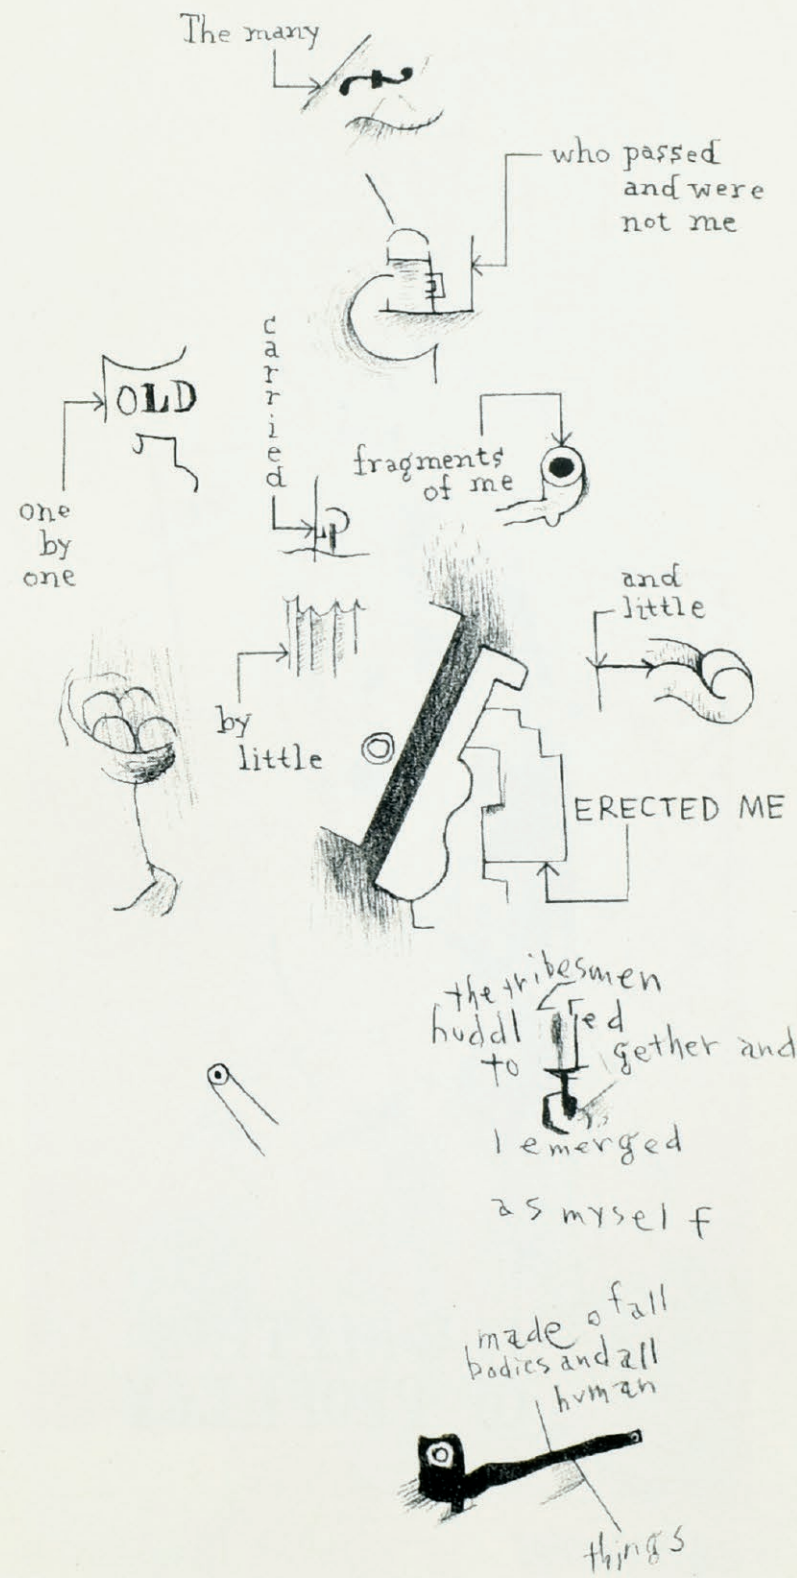 The many
who passed
and were
not me
OLD
one
by
one
carried
fragments
of me
by
little
and
little
ERECTED ME
the tribesmen
huddl ed
to gether and
I emerged
as myself
made of all
bodies and all
human
things